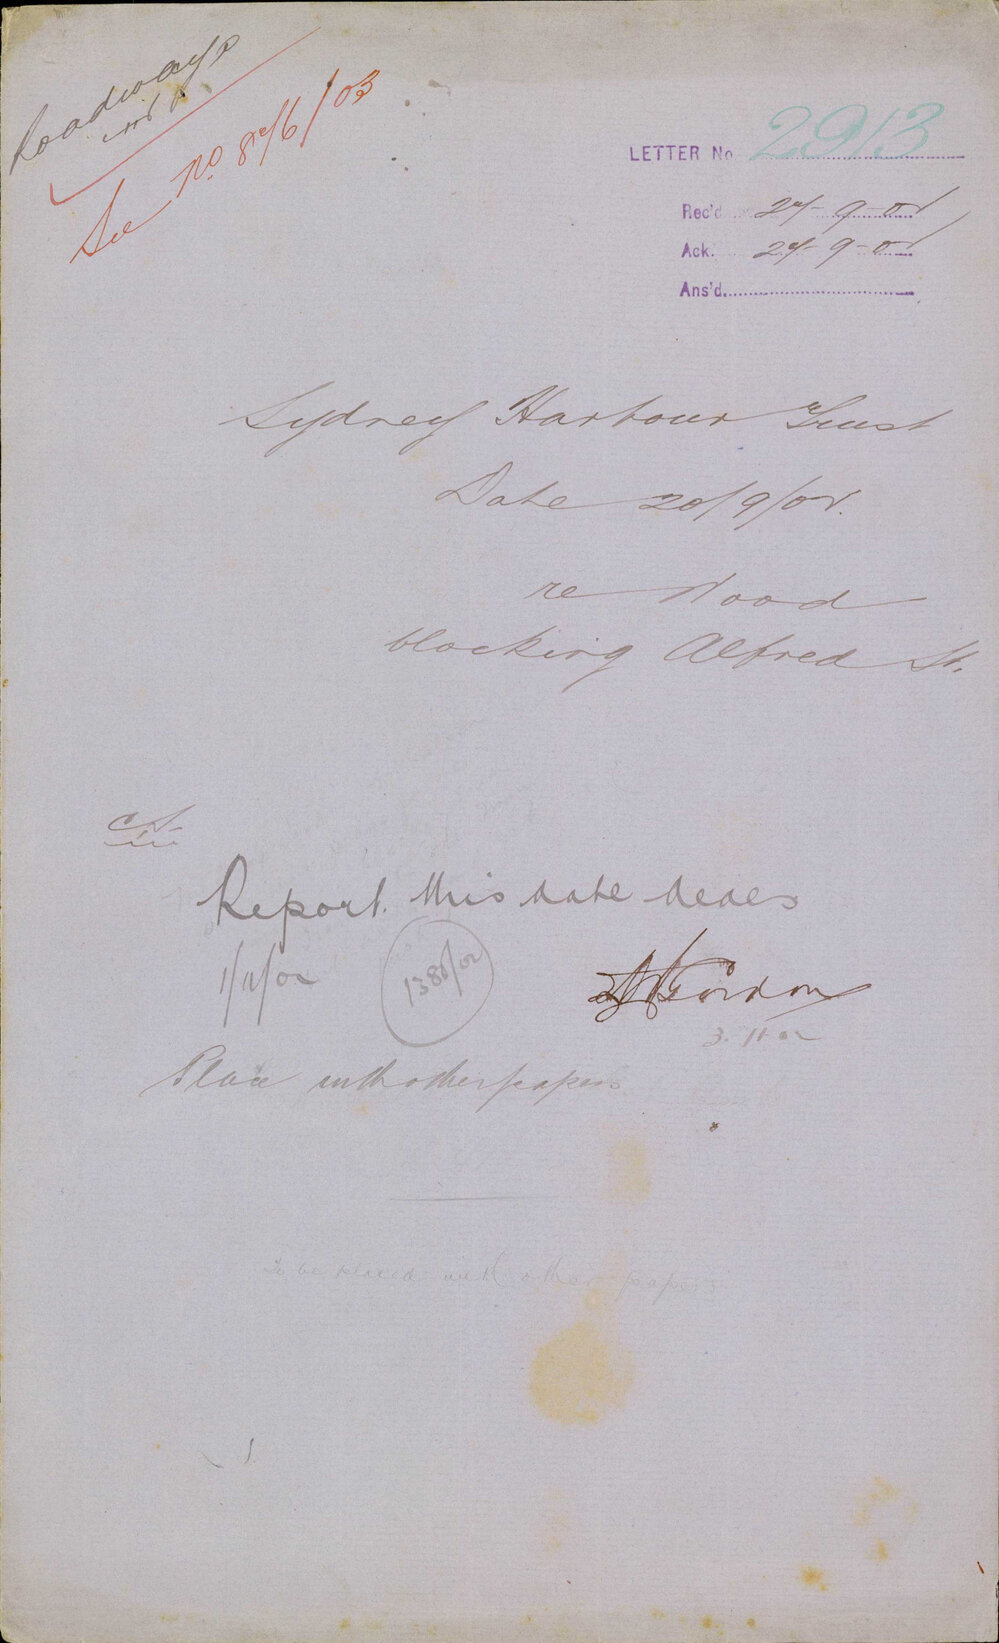 Roadways
See No 876/03
LETTER No 2913
Rec'd 24-9-01
Ack. 24-9-01
Ans'd
Sydney Harbour Trust
Date 20/9/01.
re Wood
blocking Alfred St.
Report this date deals
1/11/02
1385/02
Gordon
3.11.02
Place with other papers
To be placed with other papers